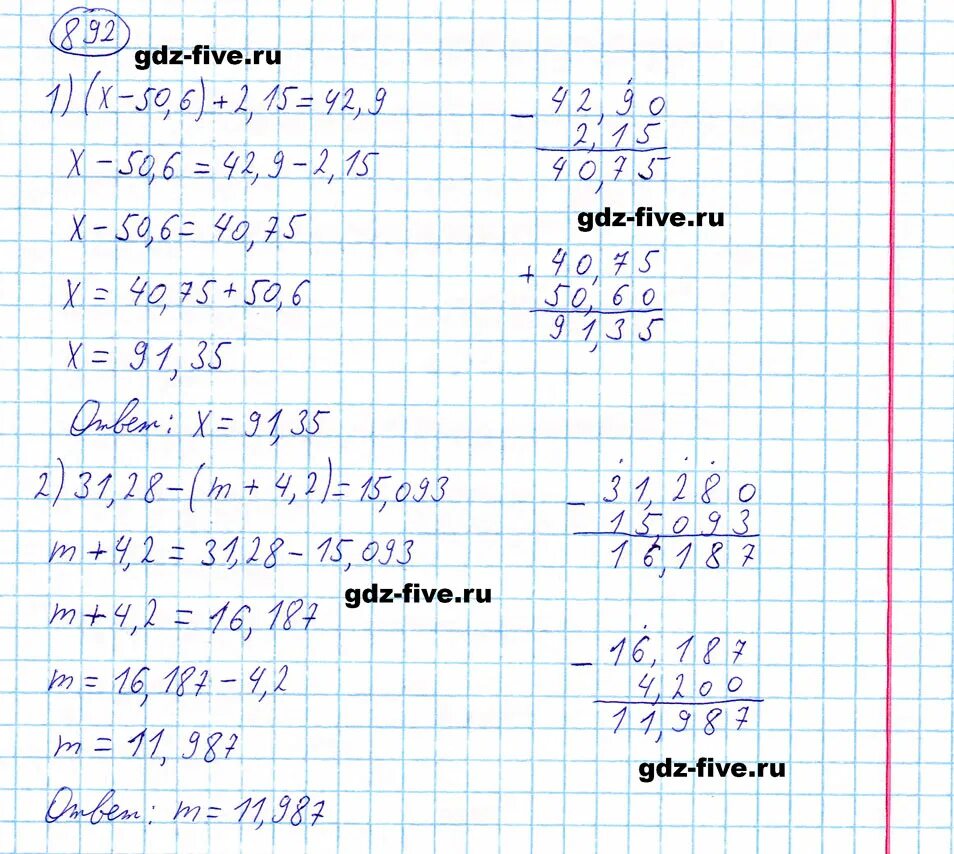 892
gdz-five.ru
1) (x - 50,6) + 2,15 = 42,9
x - 50,6 = 42,9 - 2,15
x - 50,6 = 40,75
x = 40,75 + 50,6
x = 91,35
Ответ: x = 91,35
- 42,90
2,15
40,75
gdz-five.ru
+ 40,75
50,60
91,35
2) 31,28 - (m + 4,2) = 15,093
m + 4,2 = 31,28 - 15,093
m + 4,2 = 16,187
m = 16,187 - 4,2
m = 11,987
Ответ: m = 11,987
- 31,280
15,093
16,187
gdz-five.ru
- 16,187
4,200
11,987
gdz-five.ru